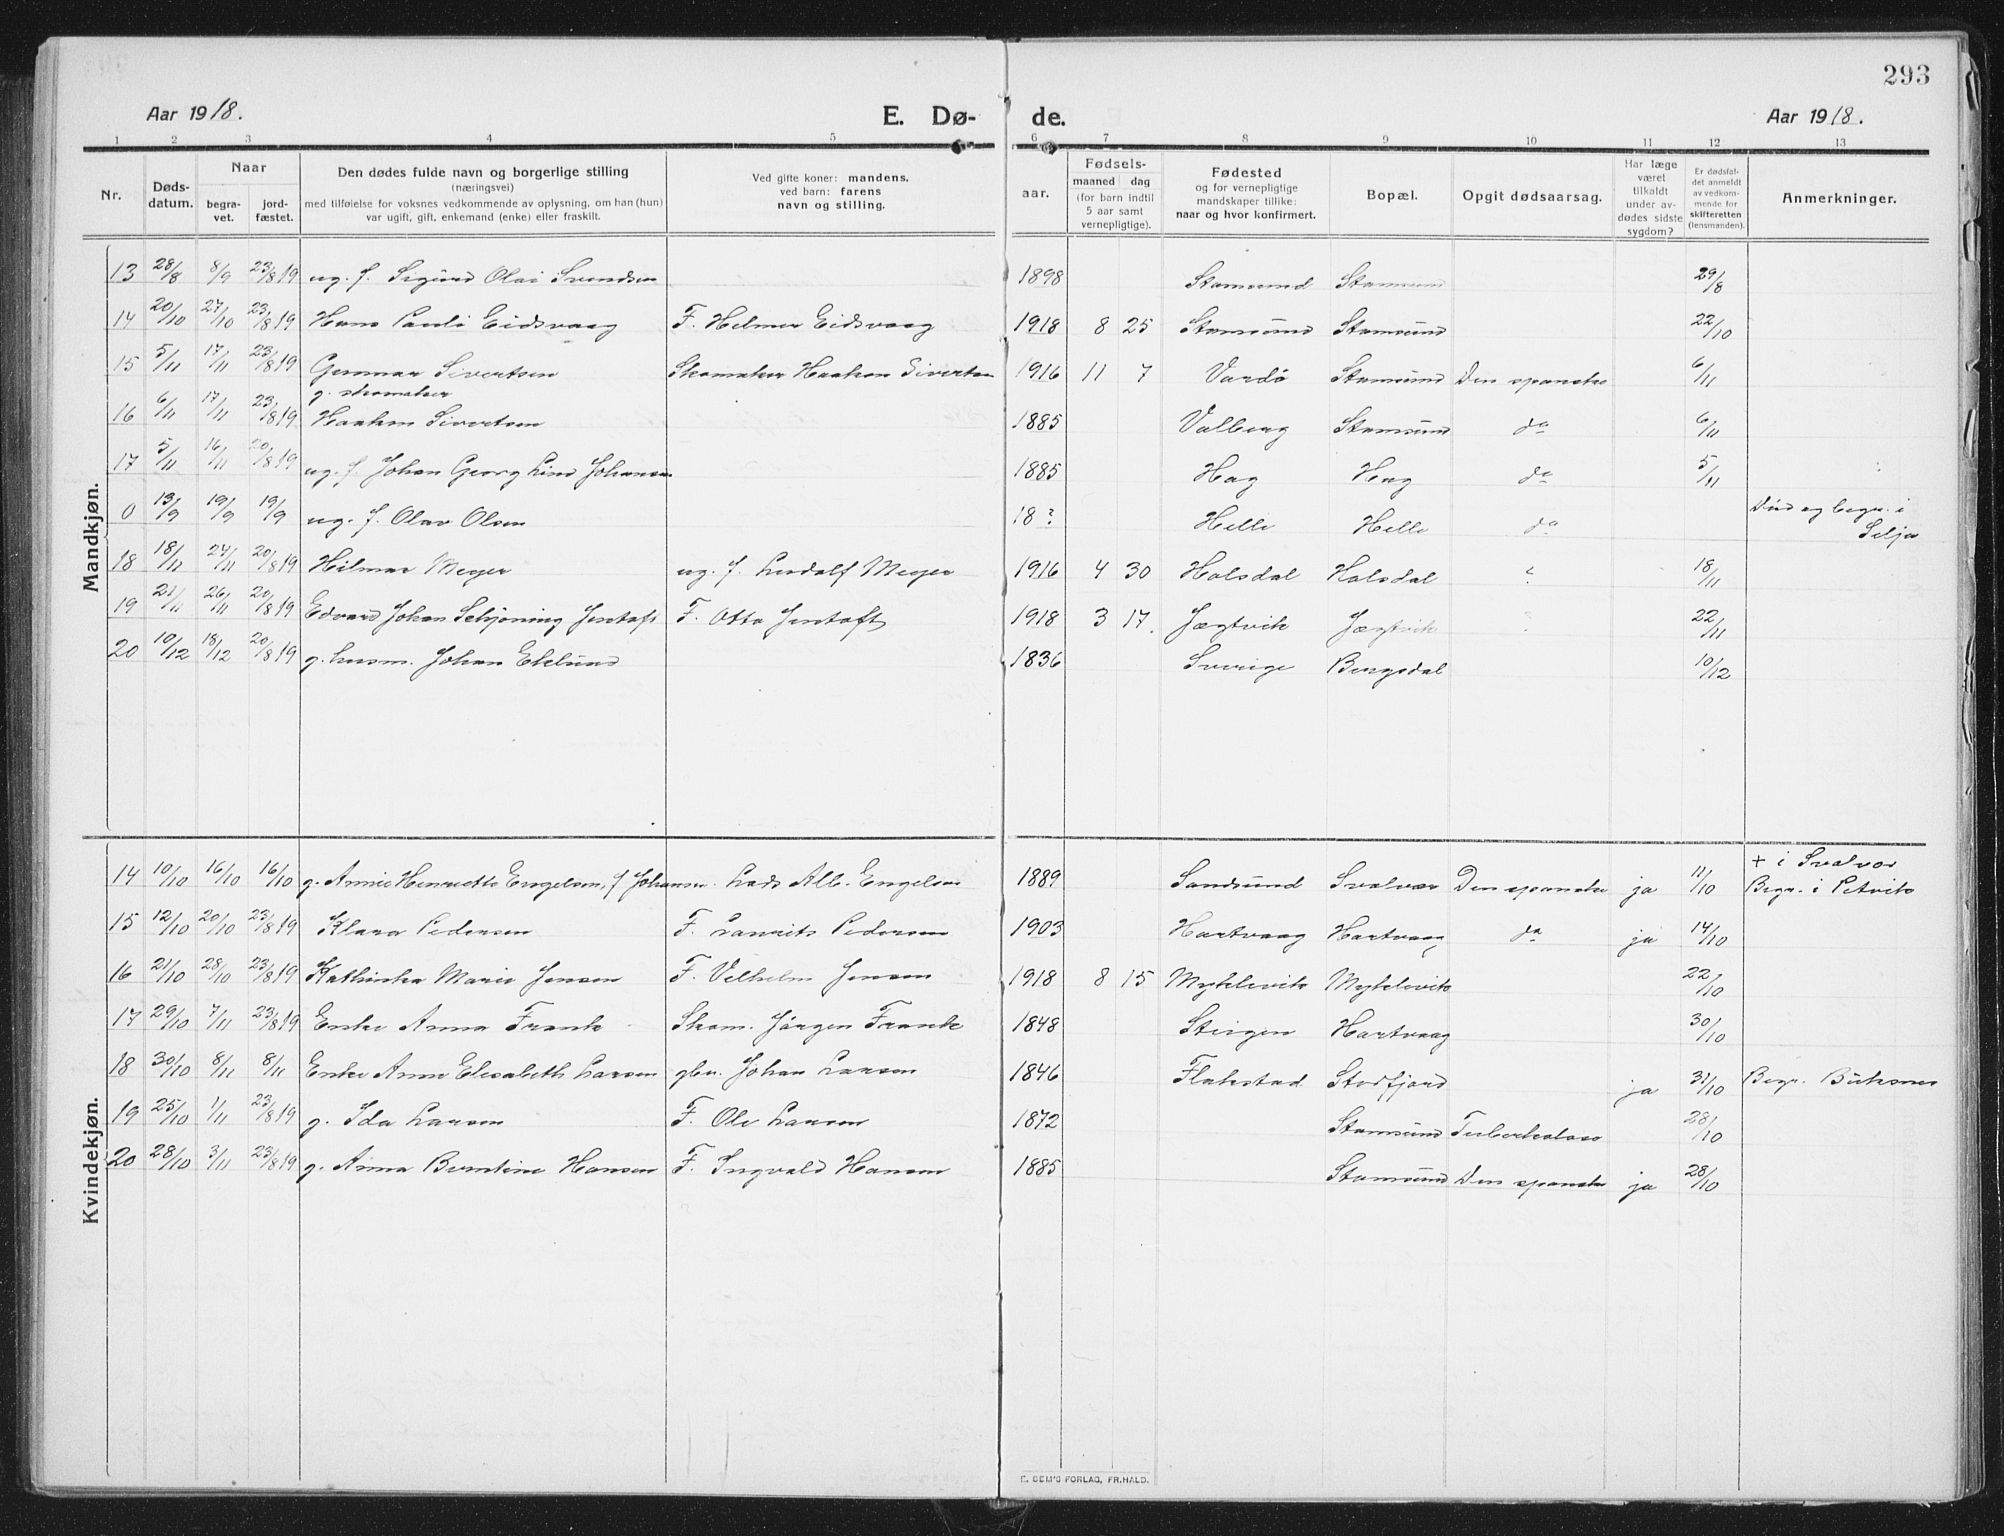 293
Aar 1918.
E. Dø-
de.
Aar 1918.
1 2 3 4 5 6 7 8 9 10 11 12 13
Nr.
Døds-
datum.
Naar
begra-
vet.
jord-
fæstet.
Den dødes fulde navn og borgerlige stilling
(næringsvei)
med tilføielse for voksnes vedkommende av oplysning, om han (hun)
var ugift, gift, enkemand (enke) eller fraskilt.
Ved gifte koner: mandens,
ved barn: farens
navn og stilling.
Fødsels-
aar.
maaned dag
(for barn indtil
5 aar samt
vernepligtige).
Fødested
og for vernepligtige
mandskaper tillike:
naar og hvor konfirmert.
Bopæl.
Opgit dødsaarsag.
Har læge
været
tilkaldt
under av-
dødes sidste
sygdom?
Er dødsfal-
det anmeldt
av vedkom-
mende for
skifteretten
(lensmanden).
Anmerkninger.
Mandkjøn.
13 28/8 8/9 23/8 19 ug. f. Sigurd Olai Svendsen 1898 Stamsund Stamsund 29/8
14 20/10 27/10 23/8 19 Hans Pauli Eidsvaag F. Helmer Eidsvaag 1918 8 25 Stamsund Stamsund 22/10
15 5/11 17/11 23/8 19 Gunnar Sivertsen Skomaker Haakon Sivertsen 1916 11 7 Vardø Stamsund Den spanske 6/11
g. skomaker
16 6/11 17/11 23/8 19 Haakon Sivertsen 1885 Valberg Stamsund do 6/11
17 5/11 16/11 20/8 19 ug. f. Johan Georg Lind Johansen 1885 Hag Hag do 5/11
0 13/9 19/9 19/9 ug. f. Olav Olsen 18 ? Helle Helle do Død og begr. i
Selje
18 18/11 24/11 20/8 19 Hilmar Meyer ug. f. Ludolf Meyer 1916 4 30 Holsdal Holsdal ? 18/11
19 21/11 26/11 20/8 19 Edvard Johan Schjøning Jentoft F. Otto Jentoft 1918 3 17. Jægtvik Jægtvik ? 22/11
20 10/12 18/12 20/8 19 g. husm. Johan Ekelund 1836 Sverige Borgsdal 10/12
Kvindekjøn.
14 10/10 16/10 16/10 g. Annie Henriette Engelsen, f. Johansen. Lads Alb. Engelsen 1889 Sandsund Svalvær Den spanske ja 11/10 + i Svalvær
Begr. i Petvik
15 12/10 20/10 23/8 19 Klara Pedersen F. Laurits Pedersen 1903 Hartvaag Hartvaag do ja 14/10
16 21/10 28/10 23/8 19 Kathinka Marie Jensen F. Vilhelm Jensen 1918 8 15 Myklevik Myklevik 22/10
17 29/10 7/11 23/8 19 Enke Anna Frank Skom. Jørgen Frank 1848 Steigen Hartvaag 30/10
18 30/10 8/11 8/11 Enke Anne Elisabeth Larsen gbr. Johan Larsen 1846 Flakstad Storfjord ja 31/10 Begr. Buksnes
19 25/10 1/11 23/8 19 g. Ida Larsen F. Ole Larsen 1872 Stamsund Tuberkulose 28/10
20 28/10 3/11 23/8 19 g. Anna Berntine Hansen F. Ingvald Hansen 1885 Stamsund Den spanske ja 28/10
E. SEM'S FORLAG, FR.HALD.